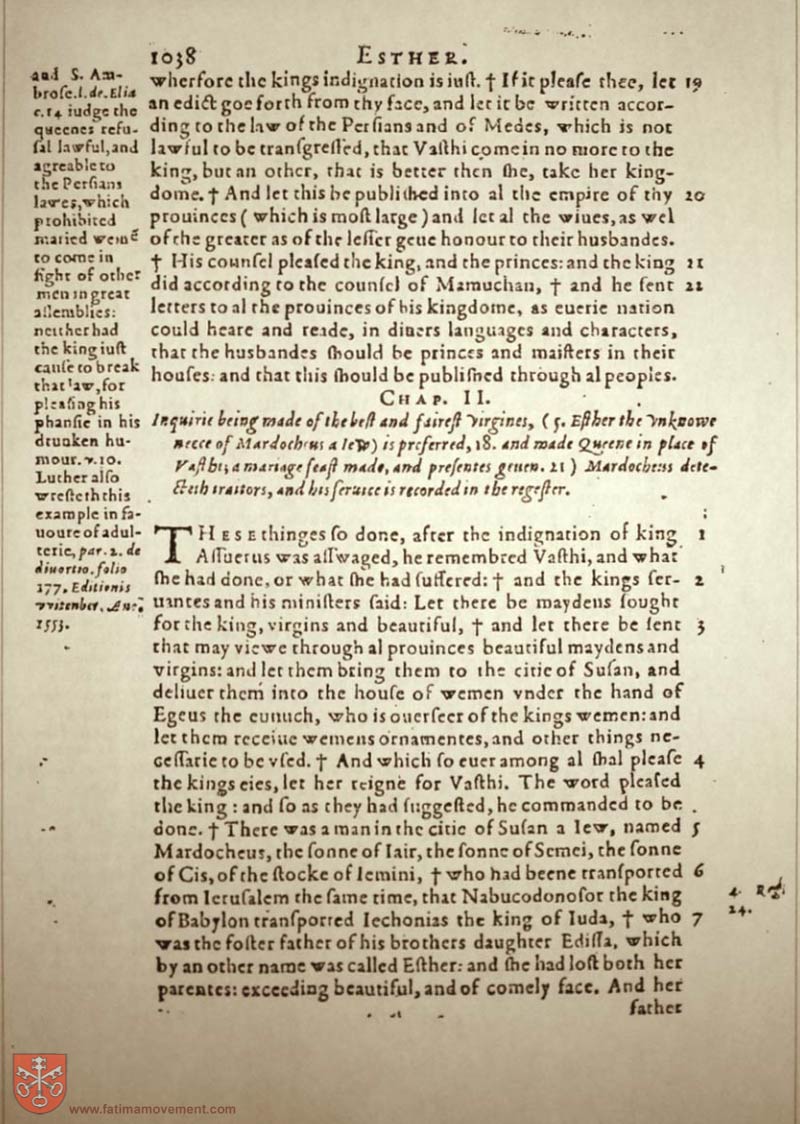 1038
ESTHER.
and S. Am-
broſe. l. de. Elia
c. 14 iudge the
queenes refu-
ſal lawful, and
agreable to
the Perſians
lawes, which
prohibited
maried wemē
to come in
ſight of other
men in great
aſſemblies:
neither had
the king iuſt
cauſe to break
that law, for
pleaſing his
phanſie in his
drunken hu-
mour. v. 10.
Luther alſo
wreſteth this
example in fa-
uoure of adul-
terie, par. 2. de
diuortio. folio
177. Editionis
vvitenber. An.
1553.
wherfore the kings indignation is iuſt. † If it pleaſe thee, let 19
an edict goe forth from thy face, and let it be written accor-
ding to the law of the Perſians and of Medes, which is not
lawful to be tranſgreſſed, that Vaſthi come in no more to the
king, but an other, that is better then ſhe, take her king-
dome. † And let this be publiſhed into al the empire of thy 20
prouinces ( which is moſt large ) and let al the wiues, as wel
of the greater as of the leſſer geue honour to their husbandes.
† His counſel pleaſed the king, and the princes: and the king 21
did according to the counſel of Mamuchan, † and he ſent 22
letters to al the prouinces of his kingdome, as euerie nation
could heare and reade, in diuers languages and characters,
that the husbandes ſhould be princes and maiſters in their
houſes: and that this ſhould be publiſhed through al peoples.
CHAP. II.
Inquirie being made of the beſt and faireſt virgines, ( 5. Eſther the vnknowe
neece of Mardocheus a Iew) is preferred, 18. and made Queene in place of
Vaſthi; a mariage feaſt made, and preſentes geuen. 21 ) Mardocheus dete-
cteth traitors, and his ſeruice is recorded in the regeſter.
THESE thinges ſo done, after the indignation of king 1
Aſſuerus was aſſwaged, he remembred Vaſthi, and what
ſhe had done, or what ſhe had ſuffered: † and the kings ſer- 2
uantes and his miniſters ſaid: Let there be maydens ſought
for the king, virgins and beautiful, † and let there be ſent 3
that may viewe through al prouinces beautiful maydens and
virgins: and let them bring them to the citie of Suſan, and
deliuer them into the houſe of wemen vnder the hand of
Egeus the eunuch, who is ouerſeer of the kings wemen: and
let them receiue wemens ornamentes, and other things ne-
ceſſarie to be vſed. † And which ſo euer among al ſhal pleaſe 4
the kings eies, let her reigne for Vaſthi. The word pleaſed
the king : and ſo as they had ſuggeſted, he commanded to be
done. † There was a man in the citie of Suſan a Iew, named 5
Mardocheus, the ſonne of Iair, the ſonne of Semei, the ſonne
of Cis, of the ſtocke of Iemini, † who had beene tranſported 6
from Ieruſalem the ſame time, that Nabucodonoſor the king
of Babylon tranſported Iechonias the king of Iuda, † who 7
was the foſter father of his brothers daughter Ediſſa, which
by an other name was called Eſther: and ſhe had loſt both her
parentes: exceeding beautiful, and of comely face. And her
father
4. Reg.
24.
www.fatimamovement.com